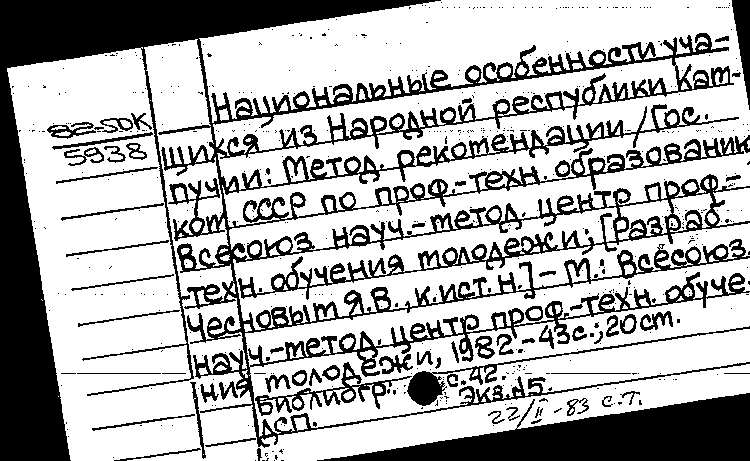 82-50К
5938
Национальные особенности уча=
щихся из Народной республики Кам-
пучии: Метод. рекомендации / Гос.
ком. СССР по проф.-техн. образованию
Всесоюз науч.-метод. центр проф.-
-техн. обучения молодежи; [Разраб.
Чесновым Я.В., к.ист.н.] - М.: Всесоюз.
науч.-метод. центр проф.-техн. обуче-
ния молодежи, 1982. - 43с.; 20см.
Библиогр.: с.42.
Экз.№5.
ДСП.
22/II-83 с.т.